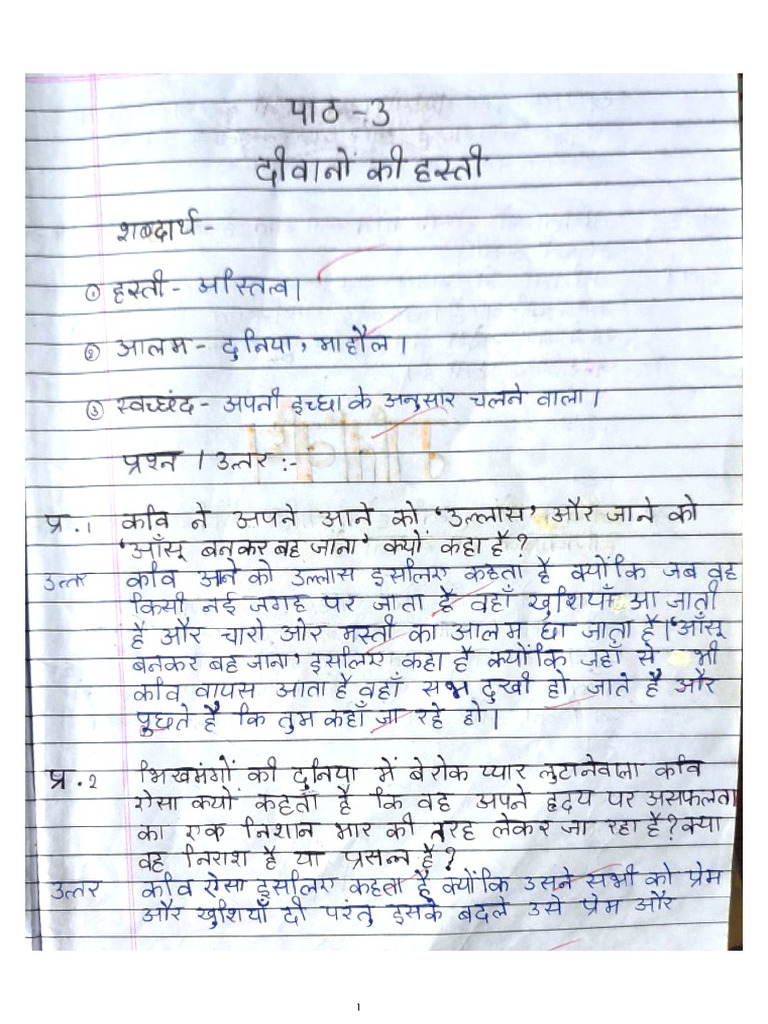 पाठ - 3
दीवानों की हस्ती
शब्दार्थ -
① हस्ती - अस्तित्व।
② आलम - दुनिया, माहौल।
③ स्वच्छंद - अपनी इच्छा के अनुसार चलने वाला।
प्रश्न । उत्तर :-
प्र.1 कवि ने अपने आने को 'उल्लास' और जाने को
'आँसू बनकर बह जाना' क्यों कहा है?
उत्तर कवि आने को उल्लास इसलिए कहता है क्योंकि जब वह
किसी नई जगह पर जाता है वहाँ खुशियाँ आ जाती
है और चारो ओर मस्ती का आलम छा जाता है। 'आँसू
बनकर बह जाना' इसलिए कहा है क्योंकि जहाँ से भी
कवि वापस आता है वहाँ सब दुखी हो जाते है और
पुछते है कि तुम कहाँ जा रहे हो।
प्र.2 भिखमंगों की दुनिया में बेरोक प्यार लुटानेवाला कवि
ऐसा क्यों कहता है कि वह अपने हृदय पर असफलता
का एक निशान भार की तरह लेकर जा रहा है? क्या
वह निराश है या प्रसन्न है?
उत्तर कवि ऐसा इसलिए कहता है क्योंकि उसने सभी को प्रेम
और खुशियाँ दी परंतु इसके बदले उसे प्रेम और
1